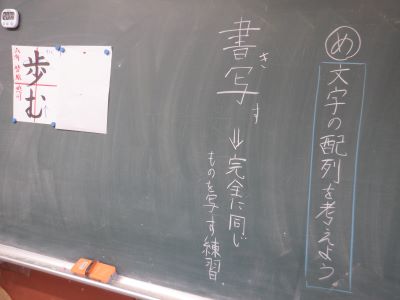 め
文字の配列を考えよう
書写
き
す
⇓完全に同じ
ものを写す練習
歩む